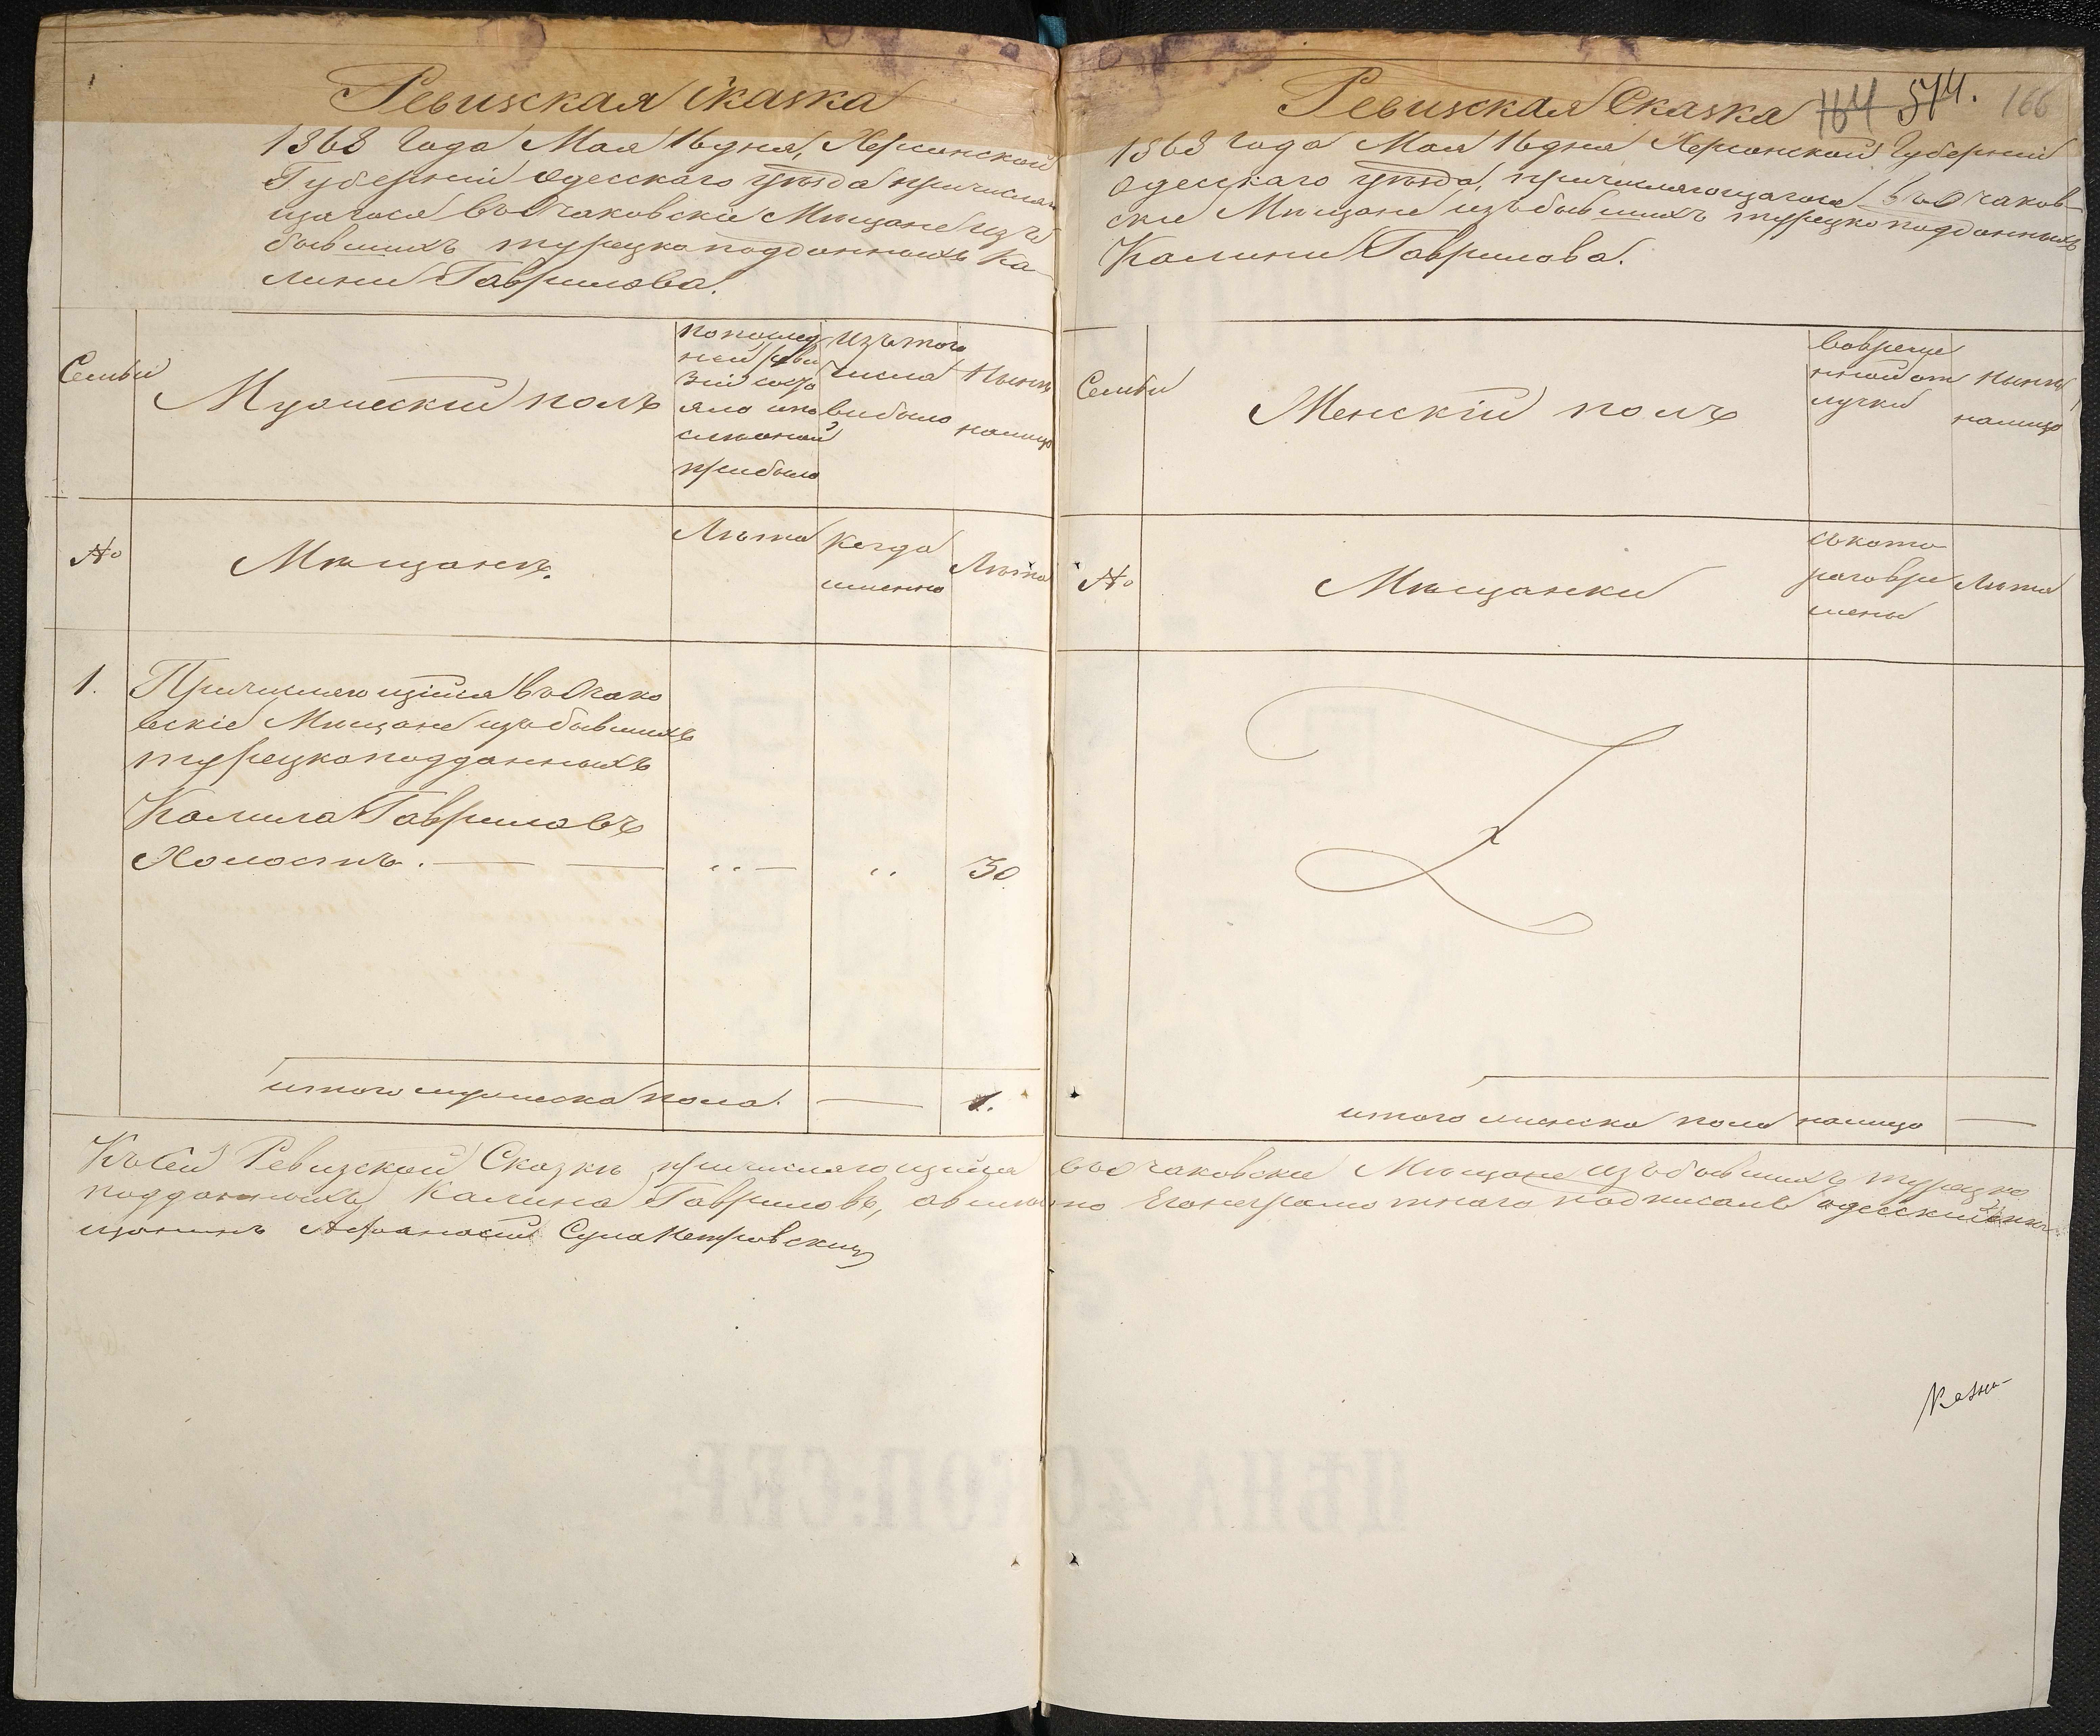 Ревизская Сказка
1863 Года Мая 16 дня, Херсонской
Губерніи Одесскаго уѣзда причисляю
щагося въ Очаковскіе Мѣщане изъ
бывшихъ турецкоподданныхъ Ка-
лины Гаврилова.
Семьи
Мужескій полъ
по послед
ней реви
зіи состо
яло или
после оной
прибыло
Изъ того
числа
выбыло
Нынѣ
налицо
№
Мѣщанъ.
Лѣта
Когда
именно
Лѣта
1.
Причисляющійся въ Очако
вскіе Мѣщане изъ бывшихъ
турецкоподданныхъ
Калина Гавриловъ
Холостъ.
30
итого мужеска пола.
1.
Ревизская Сказка
164 574. 166
1863 года Мая 16 дня Херсонской Губерніи
Одесскаго уѣзда, причисляющагося въ Очаков-
скіе Мѣщане изъ бывшихъ турецкоподданныхъ
Калины Гаврилова.
Семьи
Женскій полъ
Во време
нной от
лучки
нынѣ
налицо
№
Мѣщанки
съ кото
раго вре
мены
Лѣта
итого женска пола налицо
Къ сей Ревизской Сказкѣ причисляющійся въ Очаковскіе Мѣщане изъ бывшихъ турецко
подданныхъ Калина Гавриловъ, а вместо Его неграмотнаго подписалъ одесский мѣ
щанинъ Афанасий